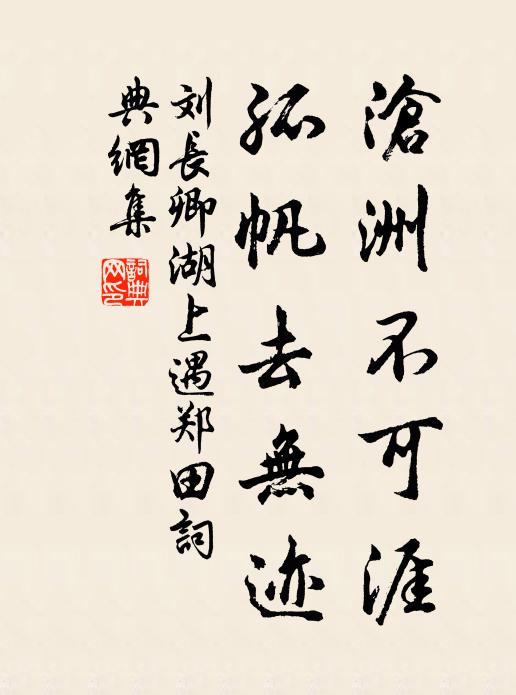 滄洲不可涯
孤帆去無迹
刘長卿湖上遇郑田詞
典網集
詞典
网印